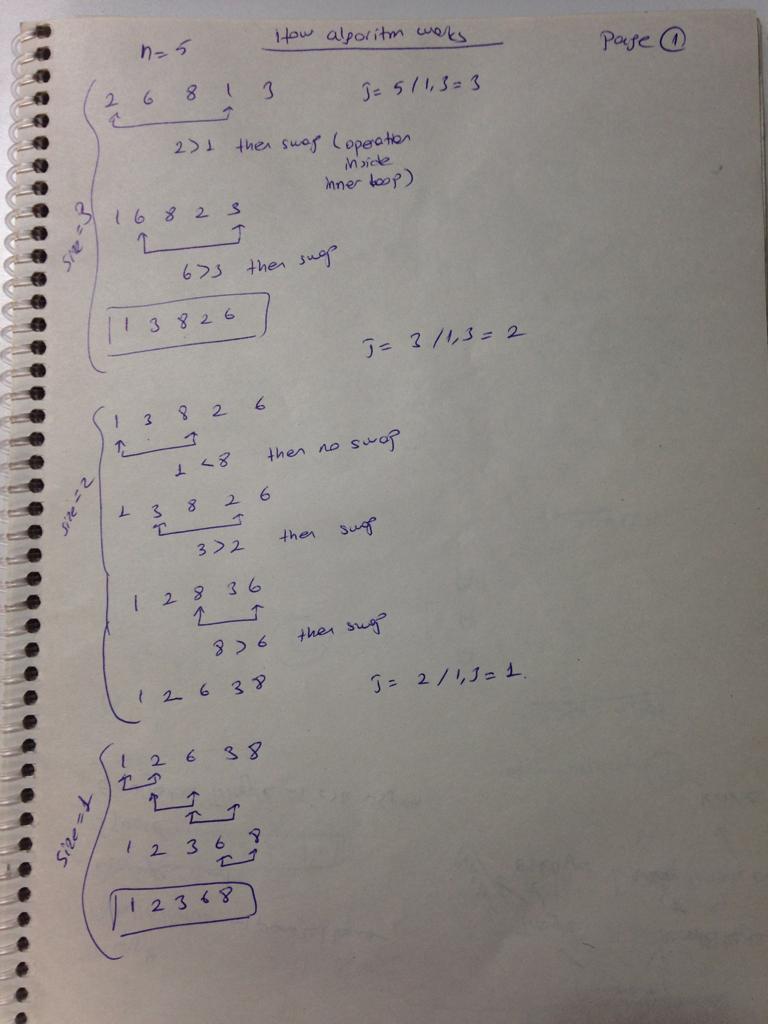 How algoritm works
Page 1
n= 5
2 6 8 1 3
J= 5/1,3 = 3
2>1 then swap (operation
inside
inner loop)
size=3
1 6 8 2 3
6>3 then swap
1 3 8 2 6
J= 3/1,3 = 2
1 3 8 2 6
1 <8 then no swap
size=2
1 3 8 2 6
3>2 then swap
1 2 8 3 6
8 > 6 then swap
1 2 6 3 8
J= 2/1,3 = 1.
1 2 6 3 8
size=1
1 2 3 6 8
1 2 3 6 8